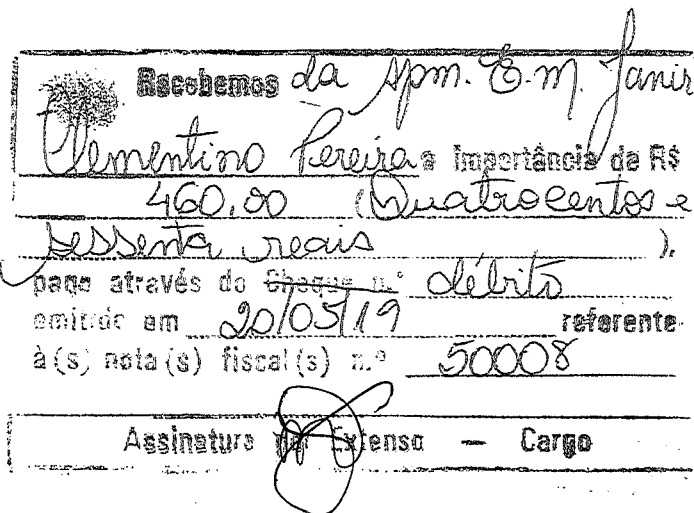 Recebemos da Apm. E.m. Janir
Clementino Pereira a importância de R$
460,00 (Quatrocentos e
sessenta reais ).
pago através do Cheque n.º débito
emitido em 20/05/19 referente
à (s) nota (s) fiscal (s) n.º 50008
Assinatura por Extenso — Cargo